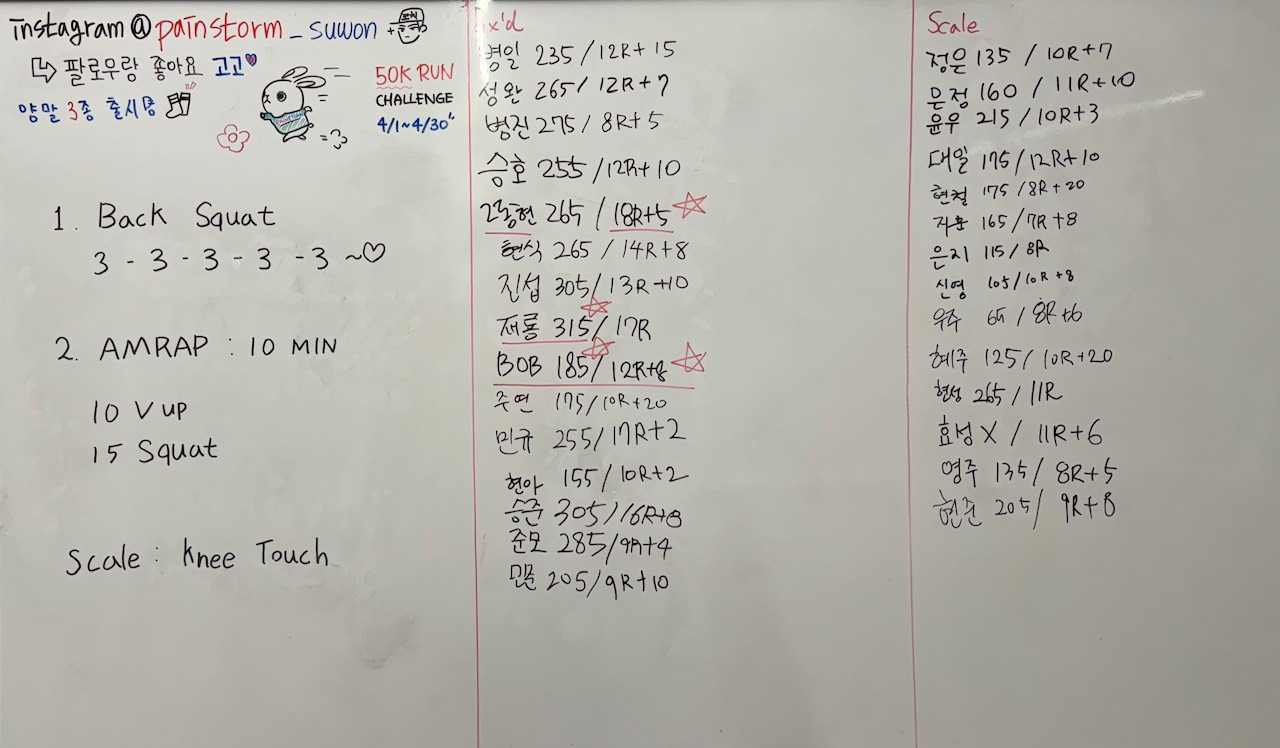 instagram@painstorm_suwon +
↳ 팔로우랑 좋아요 고고♥
양말 3종 출시중
50K RUN
CHALLENGE
4/1~4/30"
1. Back Squat
3 - 3 - 3 - 3 - 3 ~♡
2. AMRAP : 10 MIN
10 V up
15 Squat
Scale : Knee Touch
Rx'd
병일 235 / 12R+15
성완 265 / 12R+7
병진 275 / 8R+5
승호 255 / 12R+10
고동현 265 / 18R+5 ☆
현식 265 / 14R+8
진섭 305 / 13R+10
재룡 315 / 17R
BOB 185 / 12R+8 ☆
주연 175 / 10R+20
민규 255 / 17R+2
현아 155 / 10R+2
승준 305 / 16R+8
준모 285 / 9R+4
205 / 9R+10
Scale
정은 135 / 10R+7
은정 160 / 11R+10
윤우 215 / 10R+3
대일 175 / 12R+10
현철 175 / 8R+20
165 / 7R+8
은지 115 / 8R
신영 105 / 10R+8
우주 65 / 8R+6
혜주 125 / 10R+20
현성 265 / 11R
효성 X / 11R+6
영주 135 / 8R+5
현준 205 / 9R+8